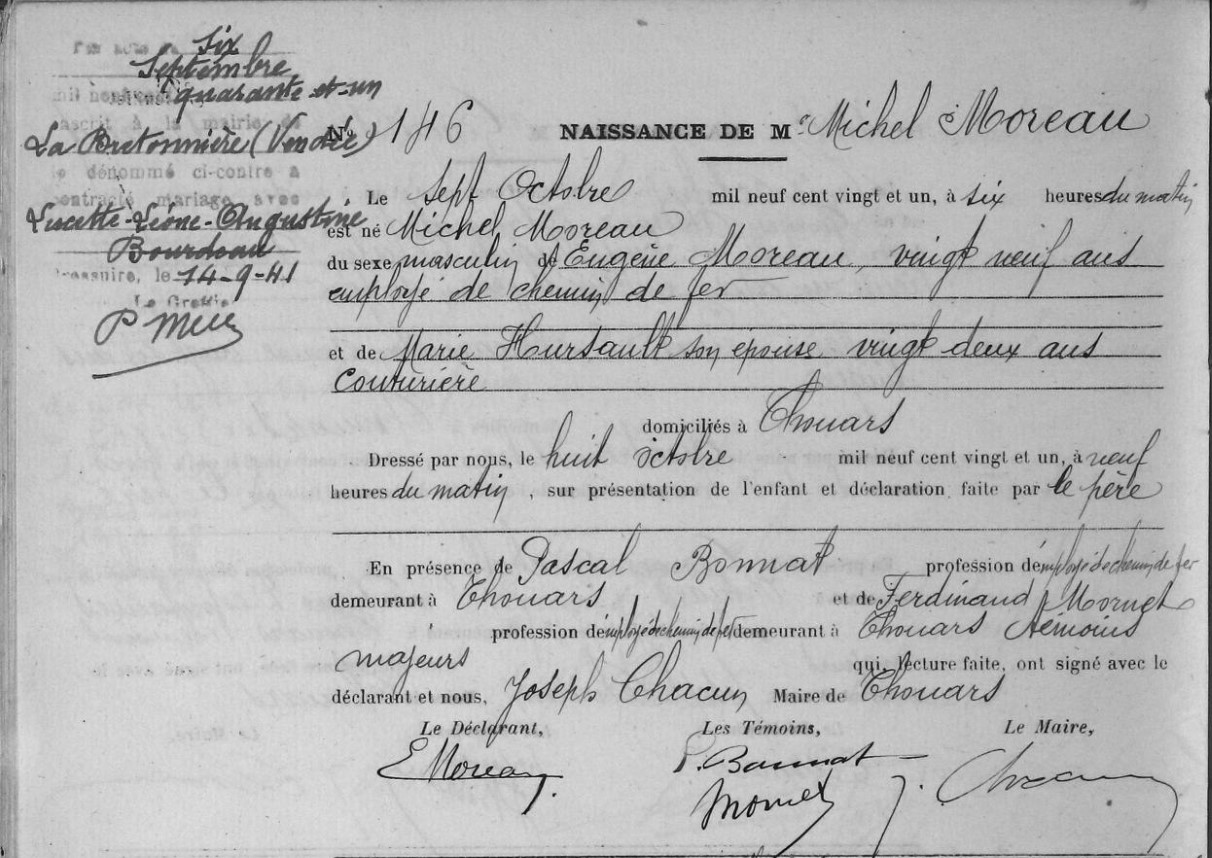 Par acte du six
Septembre
mil neuf cent quarante et un
transcrit à la mairie de
La Bretonnière (Vendée)
le dénommé ci-contre a
contracté mariage avec
Lucette-Léone-Augustine
Bourdeau
Bressuire, le 14-9-41
Le Greffier
No 146 NAISSANCE DE M Michel Moreau
Le sept Octobre mil neuf cent vingt et un, à six heures du matin
est né Michel Moreau
du sexe masculin de Eugène Moreau, vingt neuf ans
employé de chemin de fer
et de Marie Hursault son épouse vingt deux ans
Couturière
domiciliés à Thouars
Dressé par nous, le huit octobre mil neuf cent vingt et un, à neuf
heures du matin, sur présentation de l'enfant et déclaration faite par le père
En présence de Pascal Bonnat profession d'employé de chemin de fer
demeurant à Thouars et de Ferdinand Mornet
profession d'employé de chemin de fer demeurant à Thouars témoins
majeurs qui, lecture faite, ont signé avec le
déclarant et nous, Joseph Chacun Maire de Thouars
Le Déclarant, Les Témoins, Le Maire,
E Moreau P. Bonnat J. Chacun
Mornet